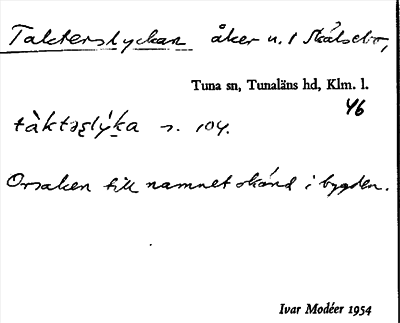 Takterslyckan åker n. 1 Skälsebo,
Tuna sn, Tunaläns hd, Klm. l.
46
tàktəʂlýka s. 104.
Orsaken till namnet okänd i bygden.
Ivar Modéer 1954